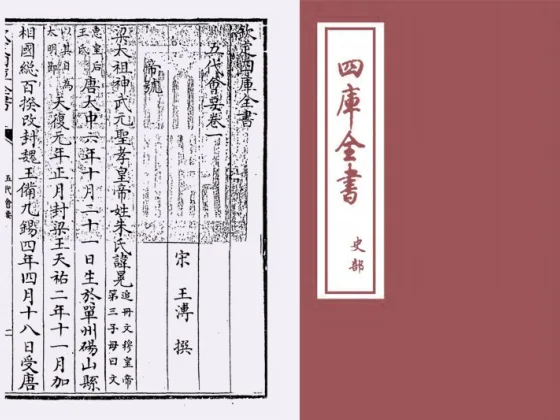 欽定四庫全書
五代會要卷一
宋 王溥 撰
帝號
梁太祖神武元聖孝皇帝姓朱氏諱晃
追冊文穆皇帝
第三子母曰文
惠皇后
王氏
唐大中六年十月二十一日生於單州碭山縣
以其日為
大明節
天復元年正月封梁王天祐二年十一月加
相國總百揆改封魏王備九錫四年四月十八日受唐
五代會要
四庫全書
史部